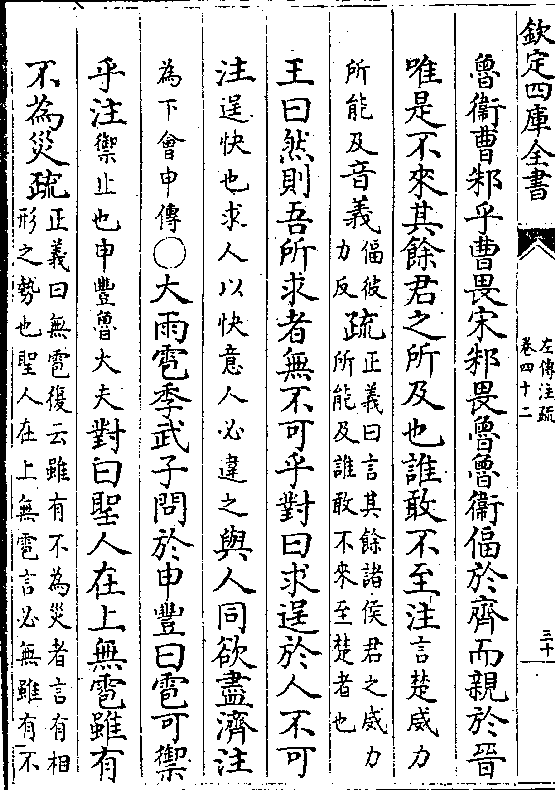 欽定四庫全書
左傳注疏
卷四十二
三十
魯衞曹邾乎曹畏宋邾畏魯魯衞偪於齊而親於晉
唯是不來其餘君之所及也誰敢不至注言楚威力
所能及音義偪彼力反疏正義曰言其餘諸侯君之威力所能及誰敢不來至楚者也
王曰然則吾所求者無不可乎對曰求逞於人不可
注逞快也求人以快意人必違之與人同欲盡濟注
為下會申傳○大雨雹季武子問於申豐曰雹可禦
乎注禦止也申豐魯大夫對曰聖人在上無雹雖有
不為災疏正義曰無雹復云雖有不為災者言有相形之勢也聖人在上無雹言必無雖有不